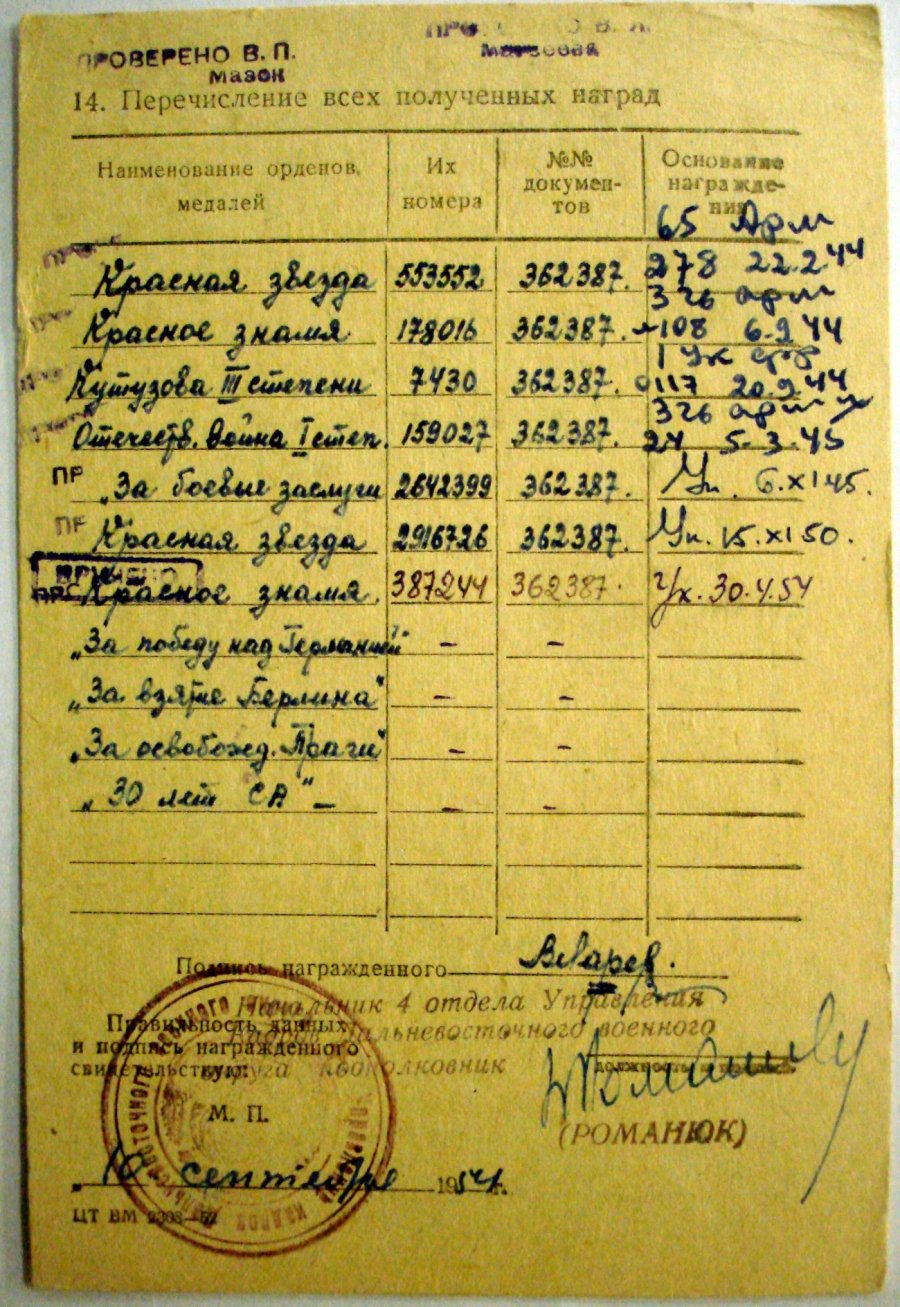 ПРОВЕРЕНО В. П.
Мазок
14. Перечисление всех полученных наград
Наименование орденов, медалей
Их номера
№№ докумен-тов
Основание награжде-ния
65 Арм
Красная звезда 553552 362387. 278 22.2 44
326 арм
Красное знамя 178016 362387. 108 6.9 44
1 Ук фр
Кутузова III степени 7430 362387. 0117 20.9 44
326 арм
Отечеств. война I степ. 159027 362387. 24 5.3.45
ПР „За боевые заслуги 2642399 362387. Ук. 6.XI 45.
ПР Красная звезда 2916726 362387. Ук. 15.XI 50.
ВРУЧЕНО
Красное знамя. 387244 362387. Ук. 30.4.54
„За победу над Германией" – –
„За взятие Берлина" – –
„За освобожд. Праги" – –
„30 лет СА" – – –
Подпись награжденного
Начальник 4 отдела Управления
Дальневосточного военного
округа подполковник
Правильность данных
и подпись награжденного
свидетельствую:
М. П.
(РОМАНЮК)
10 сентября 1954 г.
ЦТ ВМ